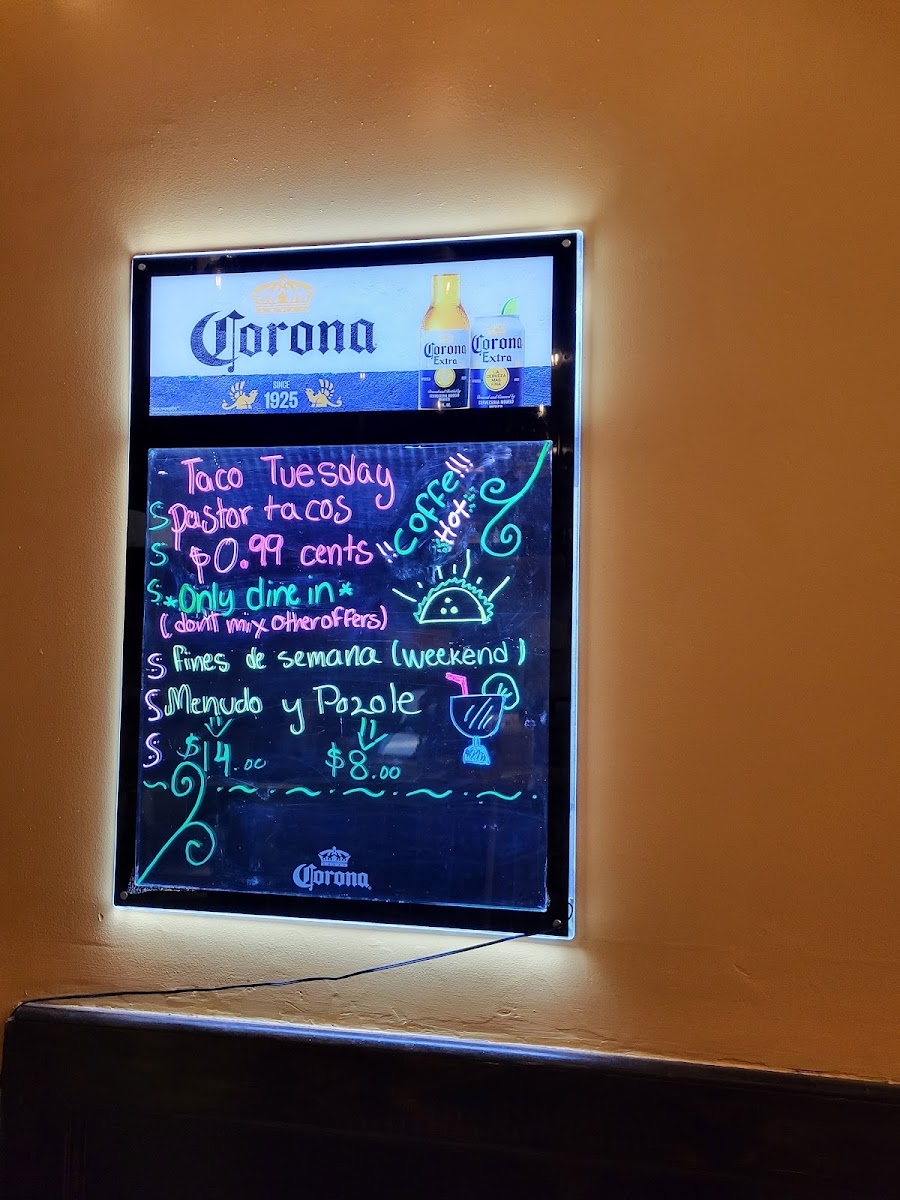 Corona
SINCE
1925
Corona
Extra
Corona
Extra
LA
CERVEZA
MAS
FINA
Taco Tuesday
Pastor tacos
$0.99 cents
!!Coffe!!!
Hot
*Only dine in*
(don't mix other offers)
Fines de semana (weekend)
Menudo y Pozole
$14.00 $8.00
Corona